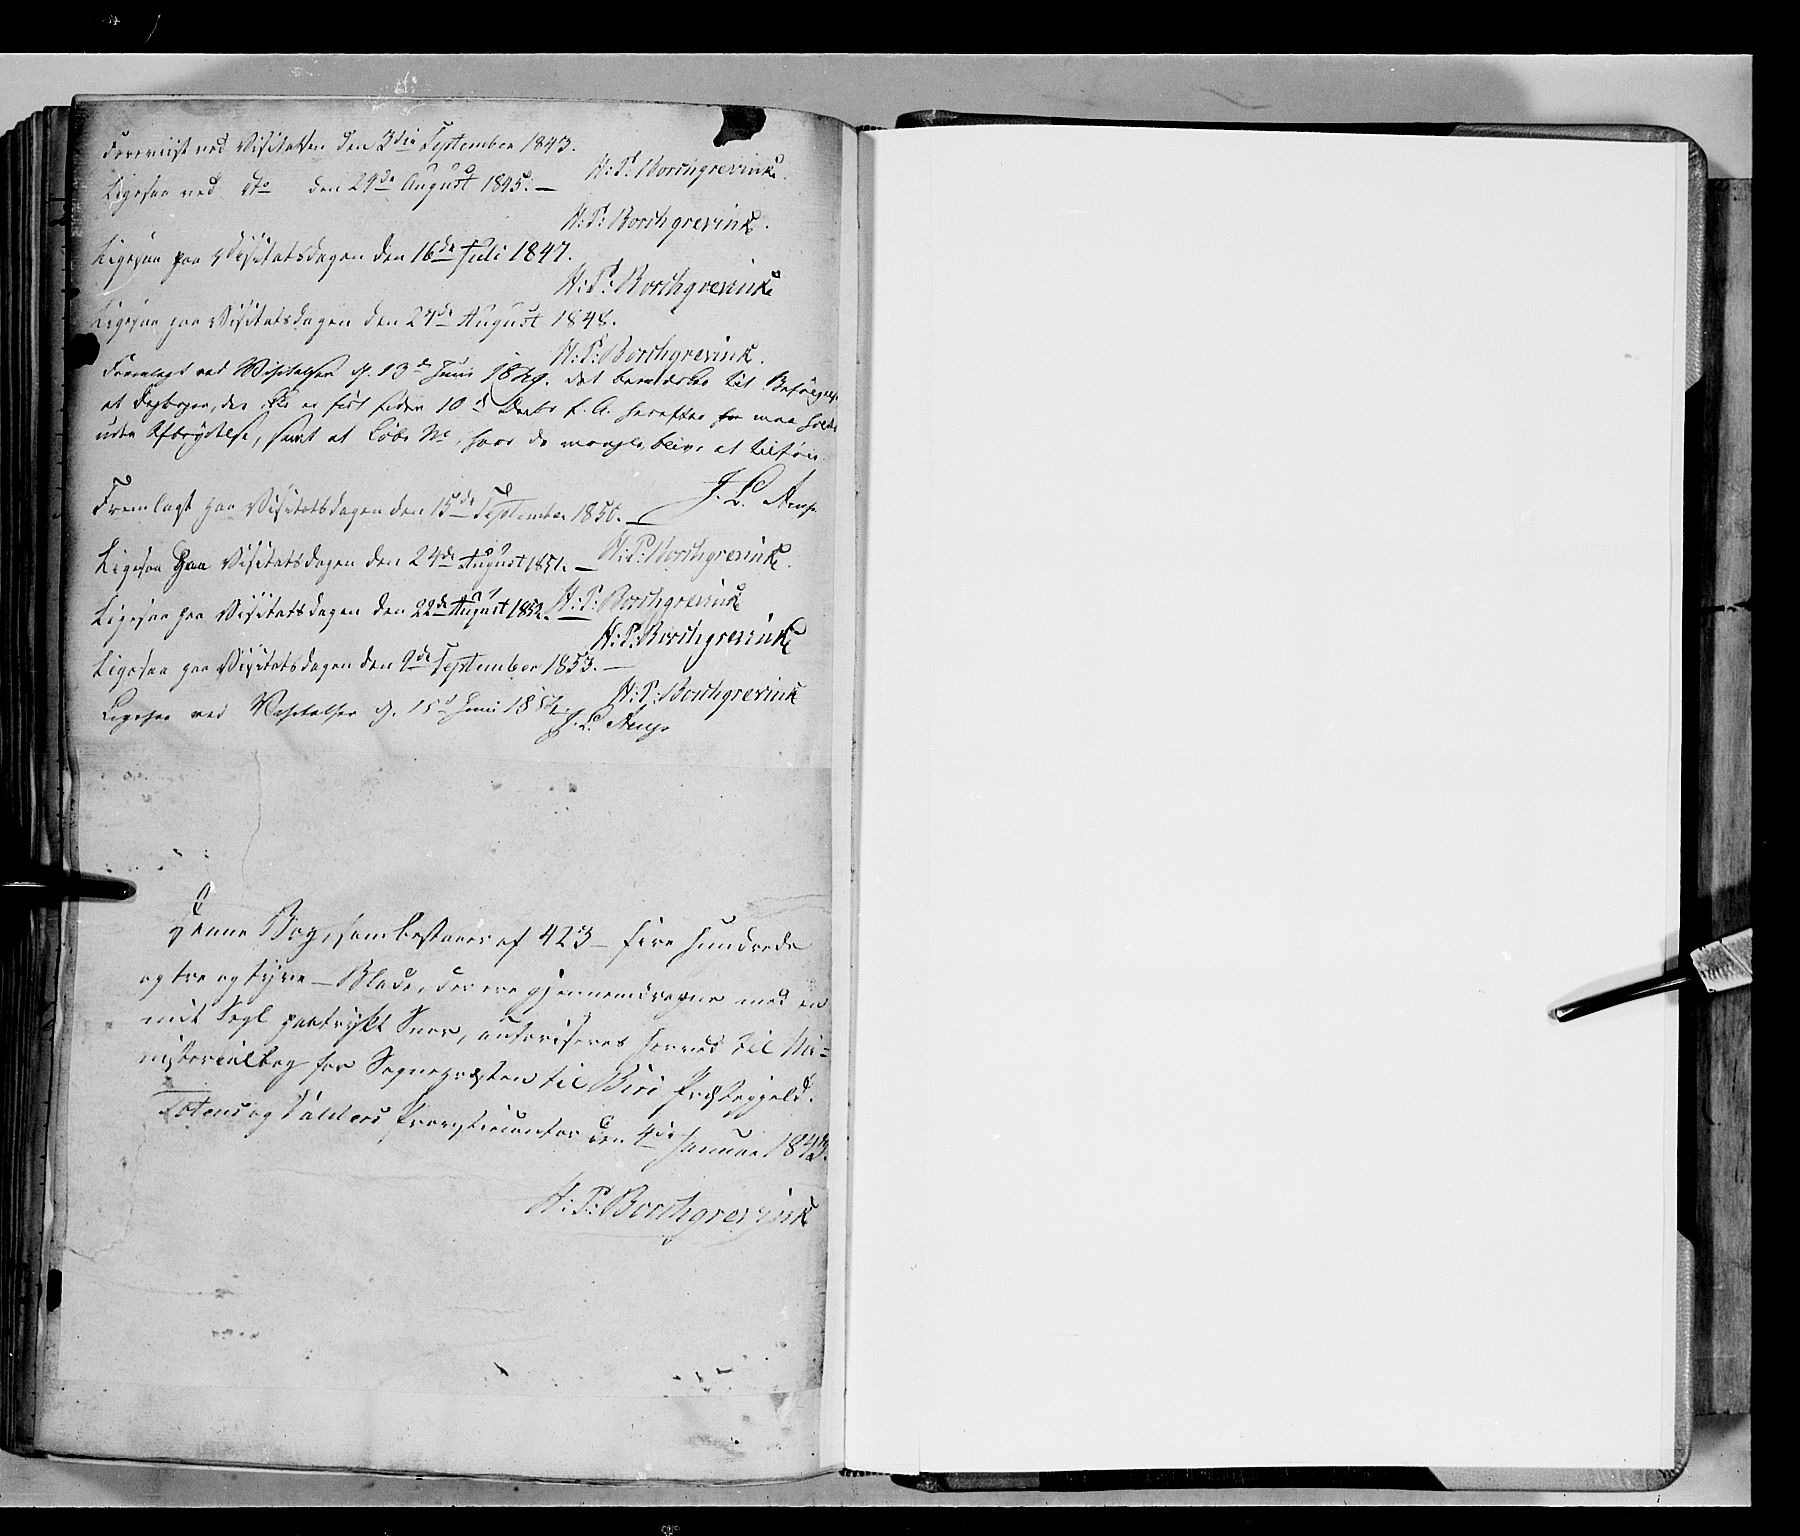 Foreviist ved Visitatsen den 3die September 1843.
H: P: Borchgrevink.
Ligesaa ved do den 24de August 1845. —
H: P: Borchgrevink.
Ligesaa paa Visitatsdagen den 16de Juli 1847.
H: P: Borchgrevink
Ligesaa paa Visitatsdagen den 24de August 1848.
H: P: Borchgrevink.
Fremlagt ved Visitatsen d. 13de Juni 1849. Det bemærkes til
at Dagbogen, der ikke er ført siden 10 d Decbr f. A. herefter maa holdes
uden Afbrydelse, samt at Løbe No, hvor de mangle, blive at tilføie.
J. L. Arup
Fremlagt paa Visitatsdagen den 15de September 1850. —
H: P: Borchgrevink.
Ligesaa paa Visitatsdagen den 24de August 1851. —
H: P: Borchgrevink
Ligesaa paa Visitatsdagen den 22de August 1852. —
H: P: Borchgrevink
Ligesaa paa Visitatsdagen den 9de September 1853. —
H: P: Borchgrevink
Ligesaa ved Visitatsen d. 15de Juni 1854.
J. L. Arup
Denne Bog, som bestaaer af 423 — fire hundrede
og tre og tyve — Blade, der ere gjennemdragne med en
mit Segl paatrykt Snor, autoriseres herved til Mi=
nisterialbog for Sognepræsten til Biri Præstegjeld.
Totens og Valders Provstiecontor den 4de Januar 1843.
H: P: Borchgrevink